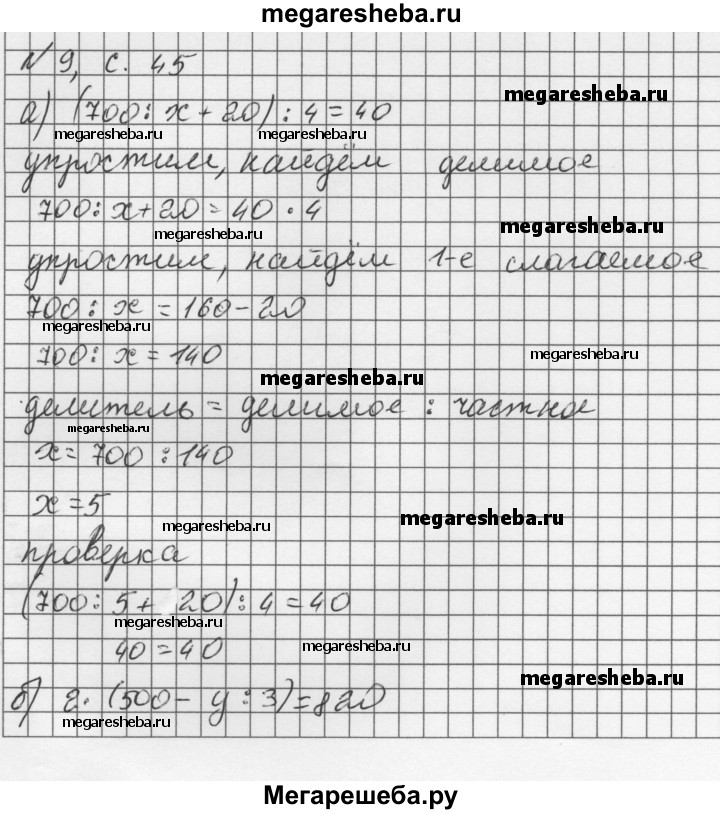 megaresheba.ru
N 9, с. 45
megaresheba.ru
а) (700 : x + 20) : 4 = 40
megaresheba.ru megaresheba.ru
упростим, найдём делимое
700 : x + 20 = 40 · 4
megaresheba.ru megaresheba.ru
упростим, найдём 1-е слагаемое
700 : x = 160 - 20
megaresheba.ru
700 : x = 140
megaresheba.ru
megaresheba.ru
делитель = делимое : частное
megaresheba.ru
x = 700 : 140
x = 5
megaresheba.ru megaresheba.ru
проверка
(700 : 5 + 20) : 4 = 40
megaresheba.ru
40 = 40 megaresheba.ru
megaresheba.ru
б) 2 · (500 - y : 3) = 820
megaresheba.ru
Мегарешеба.ру